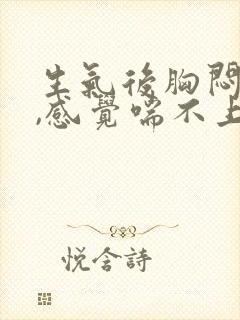 生氣後胸悶
,感覺喘不上
悅含詩